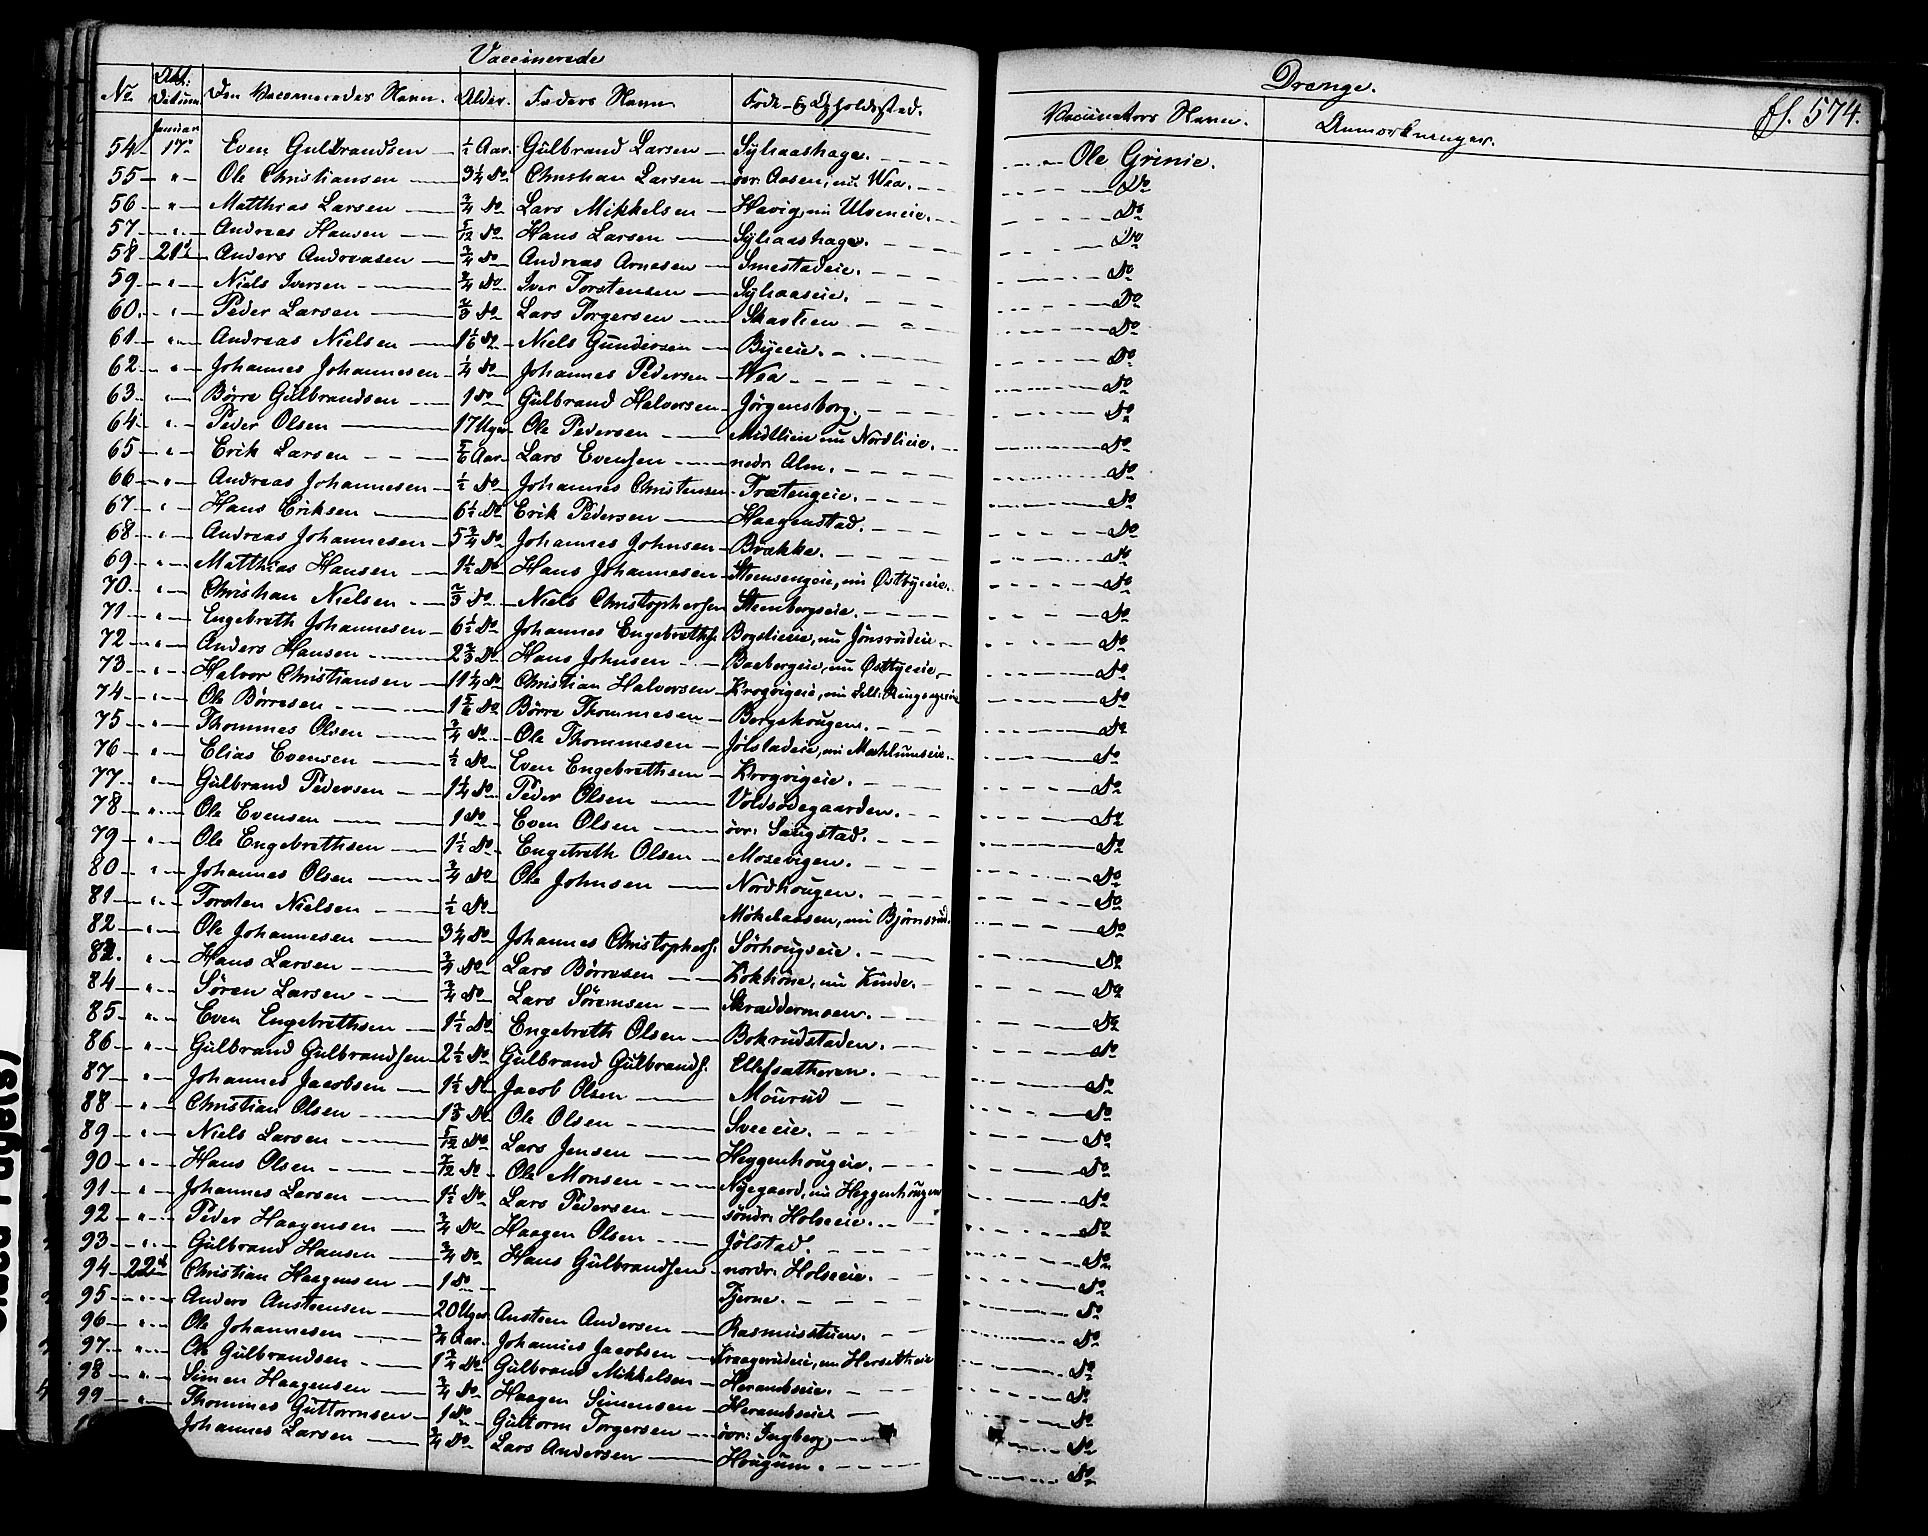 Vaccinerede
Drenge.
ff. 574.
No Dat. Datum Den Vaccineredes Navn. Alder. Faders Navn Føde- og Opholdssted. Vaccinators Navn. Anmærkninger.
Januar
54 17de Even Gulbrandsen ½ Aar. Gulbrand Larsen Syljaashage. Ole Grinie.
55 " Ole Christiansen 3¼ do Christian Larsen övr. Aasen, nu Wea. do
56 " Matthias Larsen ¾ do Lars Mikkelsen Havig, nu Ulveneie. do
57 " Andreas Hansen 5/12 do Hans Larsen Syljaashage. do
58 21de Anders Andreasen ¾ do Andreas Arnesen Smestadeie. do
59 " Niels Iversen ¾ do Iver Torstensen Syljaaseie. do
60. " Peder Larsen ⅔ do Lars Torgersen Skastien do
61 " Andreas Nielsen 1⅙ do Niels Gundersen Byeeie. do
62 " Johannes Johannesen ¼ do Johannes Pedersen Wea do
63 " Börre Gulbrandsen 1 do Gulbrand Halvorsen Jörgensborg. do
64 " Peder Olsen 17 Uger Ole Pedersen Midtlien nu Nordlieie. do
65 " Erik Larsen ⅚ Aar Lars Evensen nedr. Alm. do
66 " Andreas Johannesen ½ do Johannes Christensen Trætengeie. do
67 " Hans Eriksen 6½ do Erik Pedersen Haagenstad. do
68 " Andreas Johannesen 5¾ do Johannes Johnsen Brække. do
69 " Matthias Hansen 1½ do Hans Johannesen Steensengeie, nu Østbyeeie. do
70 " Christian Nielsen ⅔ do Niels Christophersen Steenbergseie. do
71 " Engebreth Johannesen 6½ do Johannes Engebrethss. Bergslieeie, nu Jönsrudeie do
72 " Anders Hansen 2⅔ do Hans Johnsen Baabergeie, nu Østbyeeie do
73 " Halvor Christiansen 11¼ do Christian Halvorsen Krogvigeie, nu Lill: Ringsageeie do
74 " Ole Börresen 1⅚ do Börre Thommesen Bergehougen. do
75 " Thommes Olsen ¾ do Ole Thommesen Jölstadeie, nu Mæhlumseie. do
76 " Elias Evensen ½ do Even Engebrethsen Krogvigeie. do
77 " Gulbrand Pedersen 1¼ do Peder Olsen Voldsödegaarden. do
78 " Ole Evensen 1 do Even Olsen övr. Saugstad. do
79 " Ole Engebrethsen 1½ do Engebreth Olsen Mosevigen. do
80 " Johannes Olsen ¾ do Ole Johnsen Nordhougen. do
81 " Torsten Nielsen ½ do Mökelaasen, nu Björnsrud. do
82 " Ole Johannesen 3¼ do Johannes Christophers. Sörhougseie. do
83. " Hans Larsen ¾ do Lars Börresen Kokhöne, nu Kinde. do
84 " Sören Larsen ¾ do Lars Sörensen Skræddermoen. do
85 " Even Engebrethsen 1½ do Engebreth Olsen Bokrudstaden. do
86 " Gulbrand Gulbrandsen 2½ do Gulbrand Gulbrands. Ellefsætheren. do
87 " Johannes Jacobsen 1½ do Jacob Olsen Mourud do
88 " Christian Olsen 1⅔ do Ole Olsen Sveeeie. do
89 " Niels Larsen 5/12 do Lars Jensen Heggenhougeie. do
90 " Hans Olsen 7/12 do Ole Monsen Nyegaard, nu Heggenhougen do
91 " Johannes Larsen 1½ do Lars Pedersen söndr. Holseeie. do
92 " Peder Haagensen ¾ do Haagen Olsen Jölstad. do
93 " Gulbrand Hansen ¾ do Hans Gulbrandsen nordr. Holseeie. do
94 22de Christian Haagensen 1 do Tjerne. do
95 " Anders Austensen 20 Uger Austeen Andersen Rasmusstuen. do
96 " Ole Johannesen ¾ Aar. Johannes Jacobsen Kraagerudeie, nu Hersetheie do
97 " Ole Gulbrandsen 1¾ do Gulbrand Mikkelsen Herambseie. do
98 " Simen Haagensen ¾ do Haagen Simensen Herambseie do
99 " Thommes Guttormsen 1 do Guttorm Torgersen övr: Ingberg do
Johannes Larsen ¾ do Lars Andersen Hougum. do